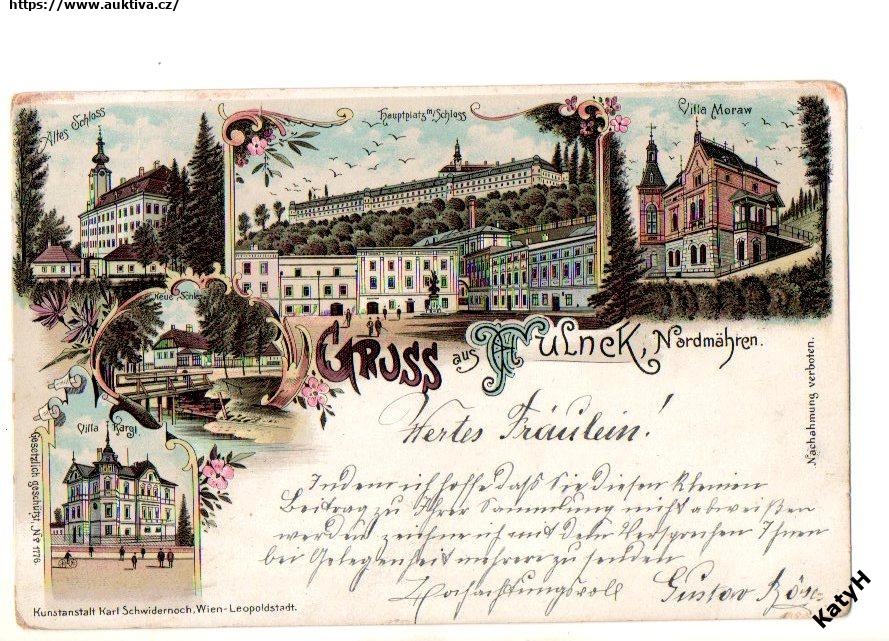 https://www.auktiva.cz/
Altes Schloss
Hauptplatz m/Schloss
Villa Moraw
Neue Schle
GRUSS aus FULNEK, Nordmähren.
Villa Kargl
Wertes Fräulein!
Indem ich hoffe daß Sie diesen kleinen
Beitrag zu Ihrer Sammlung nicht abweißen
werden zeichne ich mit dem Versprechen Ihnen
bei Gelegenheit mehrere zu senden
Hochachtungsvoll Gustav
Gesetzlich geschützt, No 1776.
Nachahmung verboten.
Kunstanstalt Karl Schwidernoch, Wien-Leopoldstadt.
KatyH